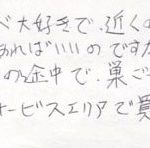 べ大好きで、近くの
あればいいのですか
の途中で、巣ご
ービスエリアで買